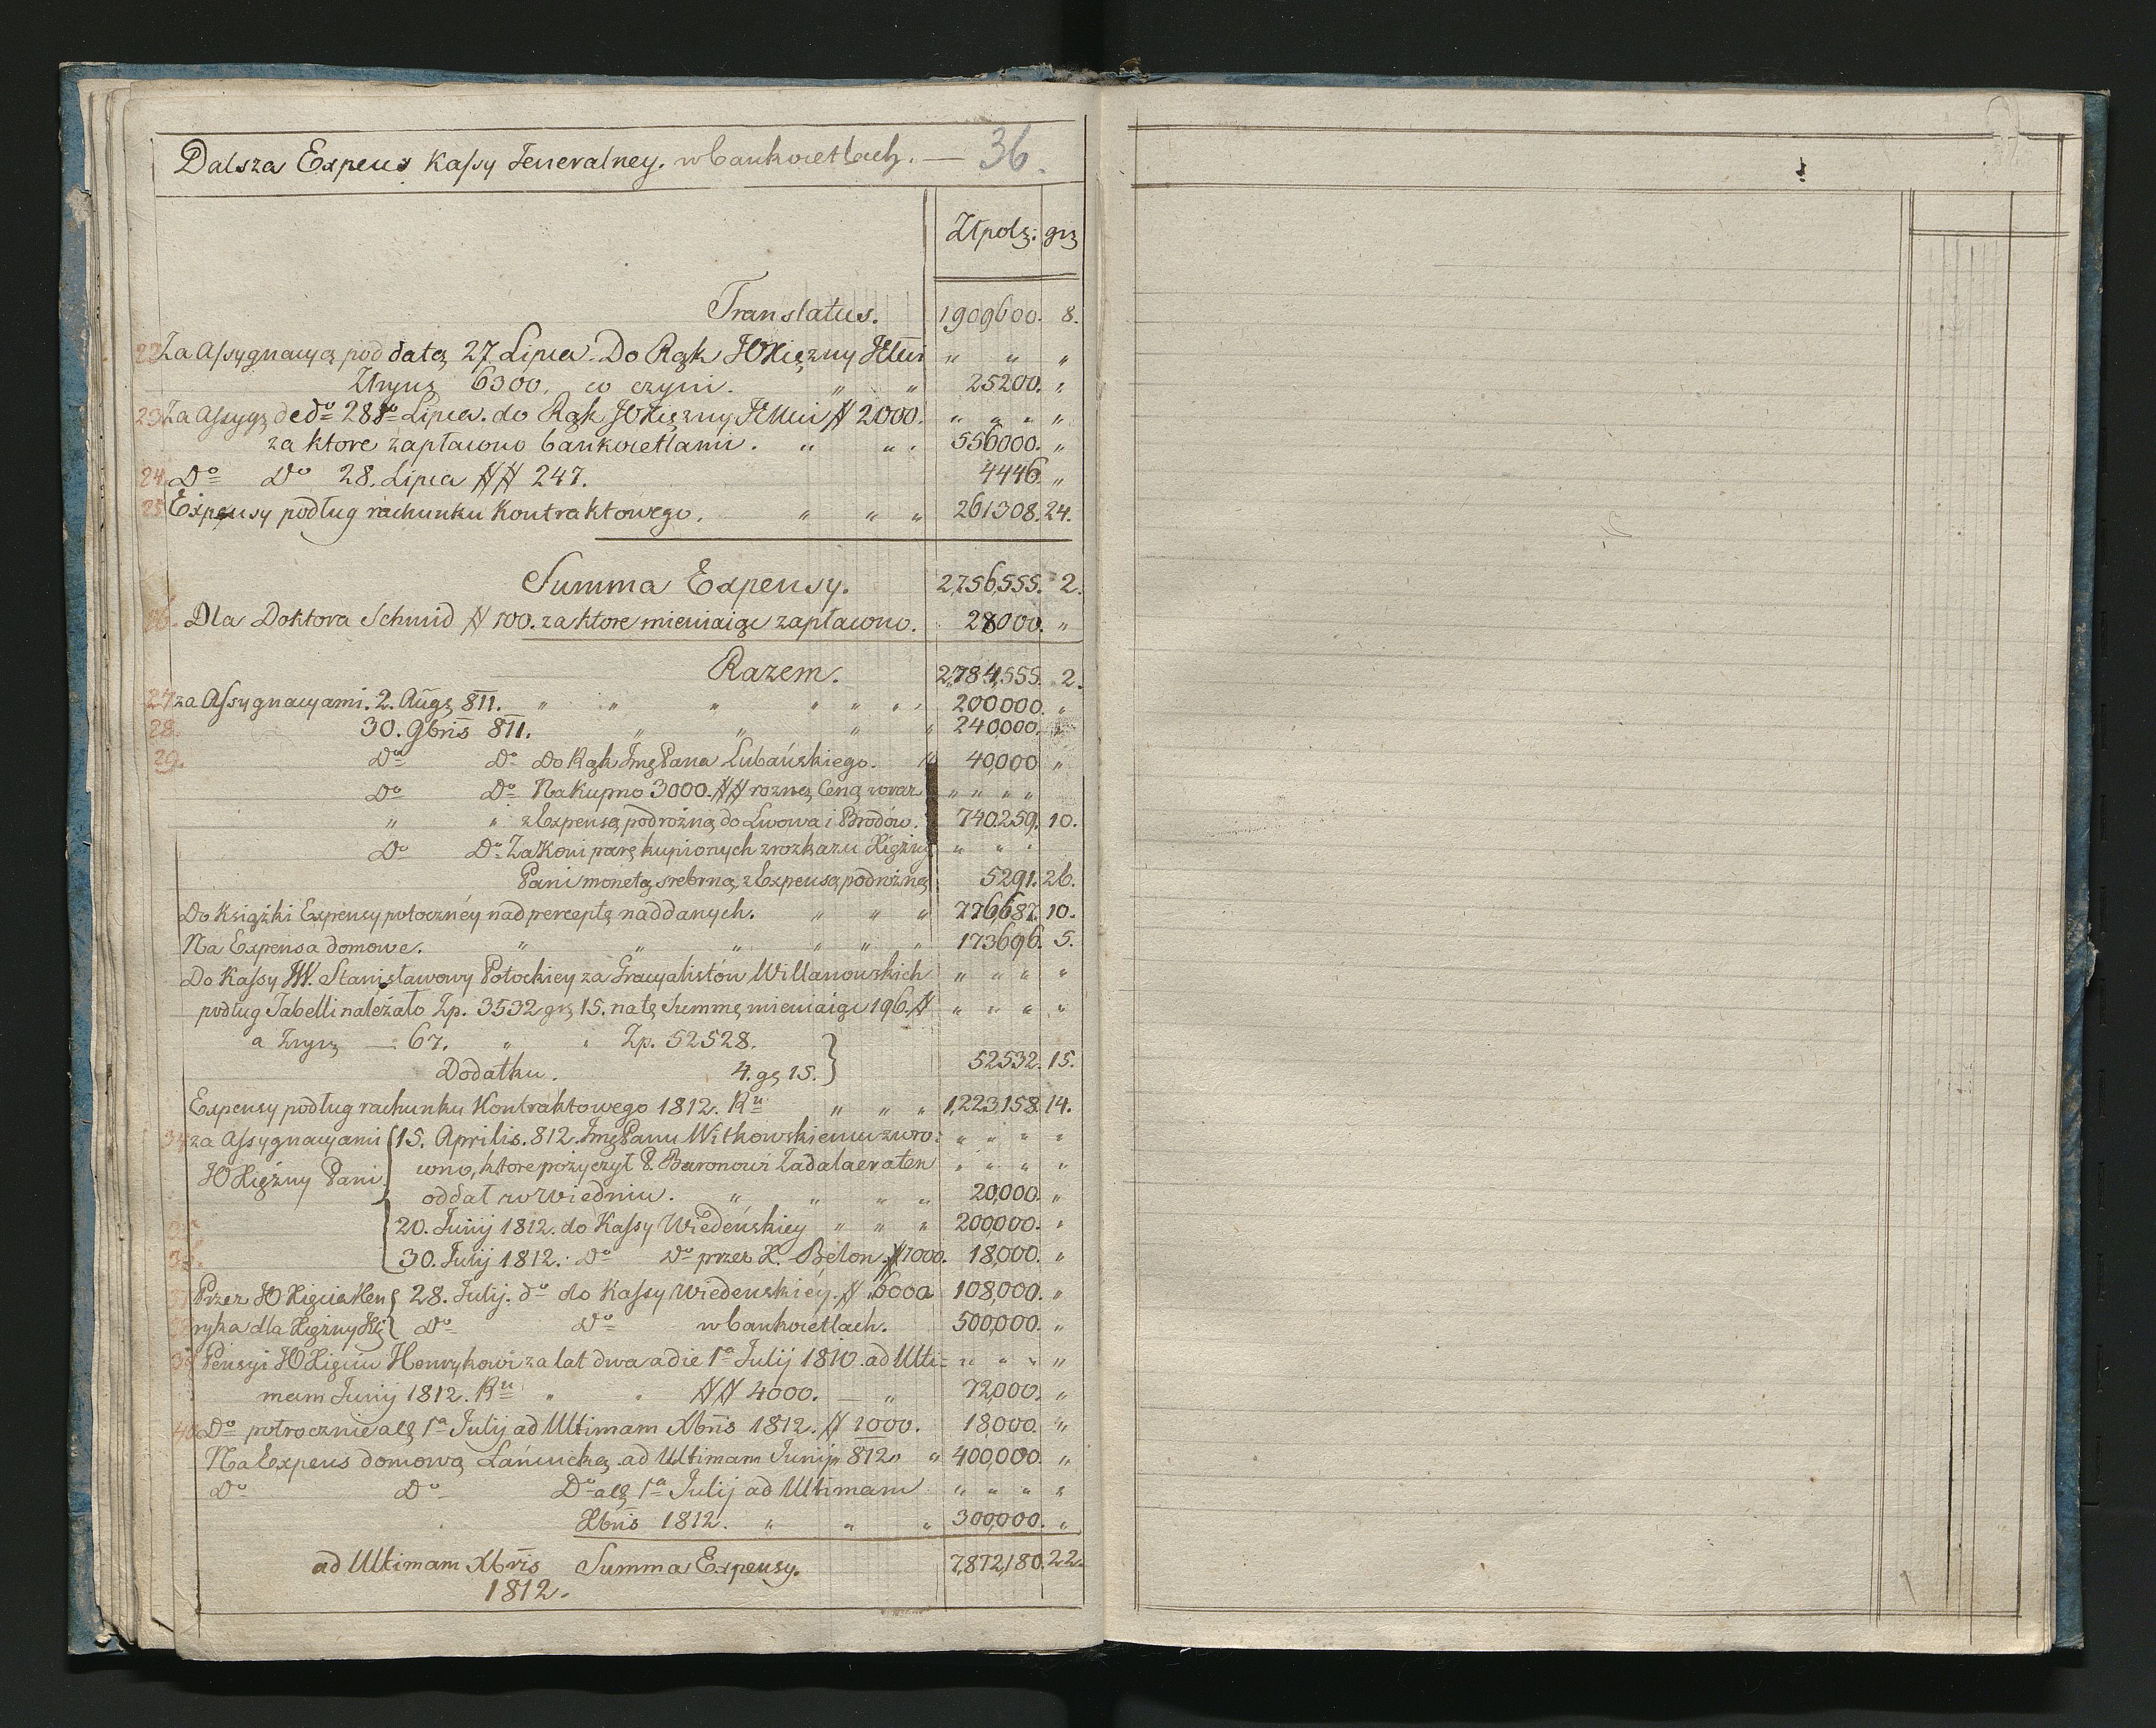 Dalsza Expens Kassy Generalney. w bankocetlach. — 36.
Złpolſ: grz
Translatus. 1909600. 8.
22 Za Assygnacyą pod datą 27 Lipca. Do Rąk JOXiężny JEMci " " "
Złryng 6300. co czyni. " " 25200. "
23 Za Assyg de do 28 Lipca. do Rąk JOXiężny JEMci # 2000. " " " "
za ktore zapłacono bankocetlami. " " 556000. "
24 Do Do 28. Lipca ## 247. 4446 "
25 Expensy podług rachunku Kontraktowego. " " " 261308. 24.
Summa Expensy. 2,756,555. 2.
26. Dla Doktora Schmid # 100. za ktore mieniaiąc zapłacono. 28000. "
Razem. 2,784,555. 2.
27 za Assygnacyami. 2. Augę 811. " " " " " " 200,000. "
28. 30. 9bris 811. " " " " 240,000. "
29. Do Do Do Rąk Jmę Pana Lubańskiego. " 40,000 "
Do Do Na Kupno 3000. ## rozną Ceną wraz " " " "
" " z Expensą podrożną do Lwowa i Brodów. 740,259. 10.
Do Do Za Koni parę kupionych z rozkazu Xiężny " " "
Pani monetą srebrną, z Expensą podrożną 5291. 26.
Do Książki Expensy potoczney nad perceptę naddanych. " " " 776,687. 10.
Na Expensa domowe. " " " " " " 173696. 5.
Do Kassy JW. Stanisławowy Potockiey za Gracyalistów Willanowskich " " " "
podług Tabelli należało Zp. 3532 grz 15. na tę Summę mieniaiąc 196. # " " " "
a Zryng — 67. " " Zp. 52528.
Dodatku. 4. gę 15. } 52532. 15.
Expensy podług rachunku Kontraktowego 1812. Ru " " " 1,223,158. 14.
34 za Assygnacyami { 15. Aprilis. 812. Jmę Panu Witkowskiemu zwro: " " " "
JO Xiężny Pani cono, ktore pożyczył P. Baronowi a ten " " " "
oddał w Wiedniu. " " " " 20,000. "
20. Junij 1812. do Kassy Wiedeńskiey " " " 200,000. "
30. Julij 1812. Do Do przez X. Beton. # 1000. 18,000. "
Przez JO Xięcia Hen { 28. Julij. do do Kassy Wiedenskiéy. # 6000 108,000. "
ryka dla Xiężny JEj { Do Do w bankocetlach. 500,000. "
39 Pensyi JO Xięciu Henrykowi za lat dwa a die 1a Julij 1810. ad Ulti= " " " "
mam Junij 1812. Ru " " ## 4000. " 72,000. "
40 Do potrocznie alę 1a Julij ad Ultimam Xbris 1812. # 1000. 18,000. "
Na Expens domową Łańcucką ad Ultimam Junij 812. " 400,000. "
Do Do Do alę 1a Julij ad Ultimam " " " "
Xbris 1812. " " " 300,000. "
ad Ultimam Xbris Summa Expensy. 7,872,180. 22.
1812.